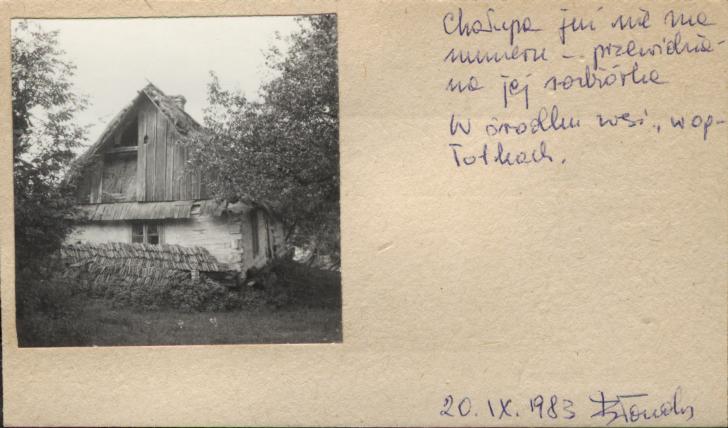 Chałupa już nie ma
numeru – przewidzia-
na jej rozbiórka
W środku wsi, w op-
łotkach.
20. IX. 1983